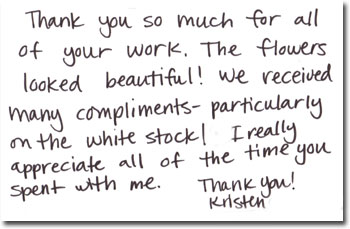 Thank you so much for all
of your work. The flowers
looked beautiful! We received
many compliments- particularly
on the white stock! I really
appreciate all of the time you
spent with me. Thank you!
Kristen